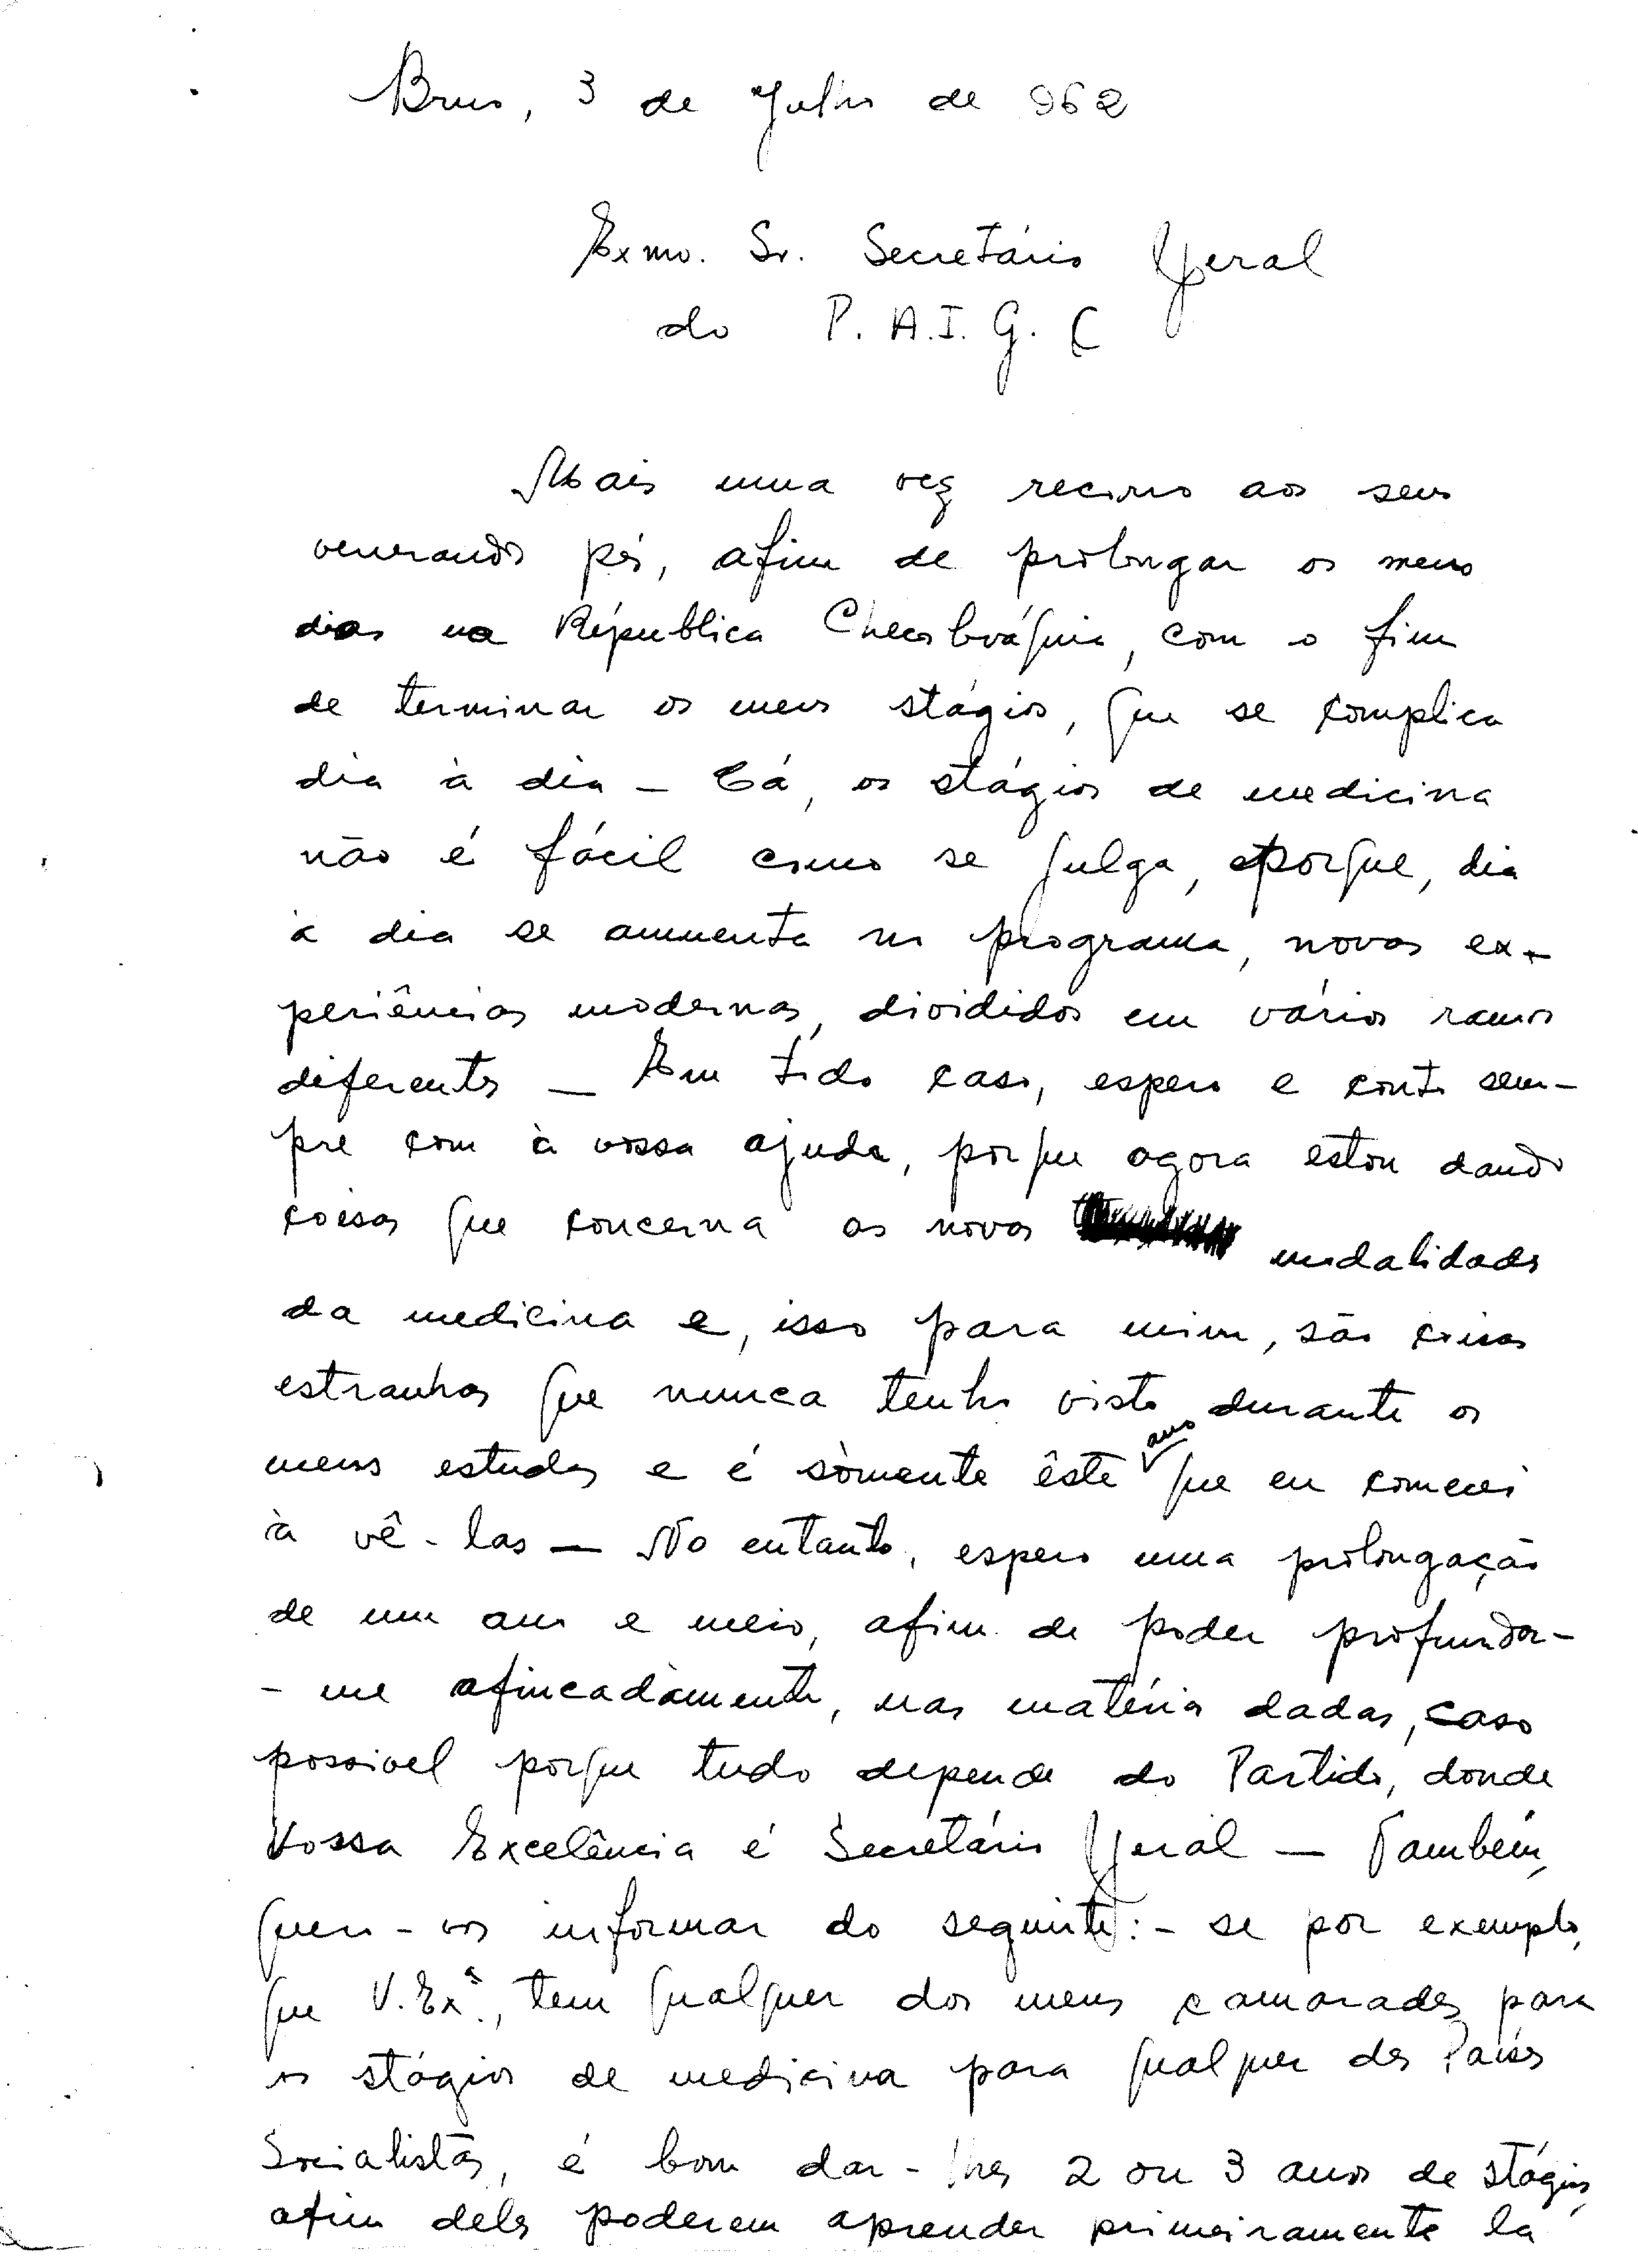 Bruo, 3 de Julho de 962
Exmo. Sr. Secretário Geral
do P. A. I. G. C
Mais uma vez recorro aos seus
venerando pés, afim de prolongar os meus
dias na Répública Checoslováquia, com o fim
de terminar os meus stágios, que se complica
dia à dia — Cá, os stágios de medicina
não é fácil como se julga, porque, dia
à dia se aumenta no programa, novas ex-
periências modernas, divididos em vários ramos
diferentes — Em todo caso, espero e conto sem-
pre com à vossa ajuda, porque agora estou dando
coisas que concerna as novas modalidades
da medicina e, isso para mim, são coisas
estranhas que nunca tenho visto durante os
meus estudos e é sòmente êste ano que eu comecei
à vê-las — No entanto, espero uma prolongação
de um ano e meio, afim de poder profundar-
-me afincadamente, nas matéria dadas, caso
possivel porque tudo depende do Partido, donde
Vossa Excelência é Secretário Geral — Também,
quero-vos informar do seguinte:- se por exemplo,
que V. Exª., tem qualquer dos meus camarades para
os stágios de medicina para qualquer dos Países
Socialistas, é bom dar-lhes 2 ou 3 anos de stágios,
afim deles poderem aprender primeiramente la